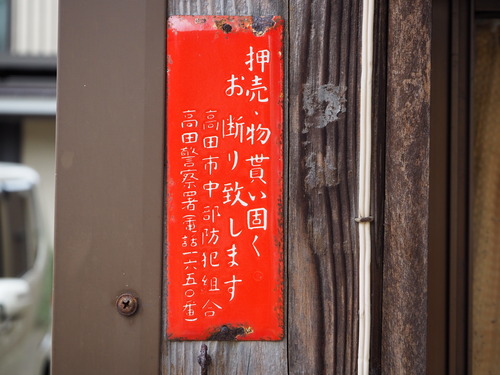 押売・物貰い固く
お断り致します
高田市中部防犯組合
高田警察署(電話一六五〇番)